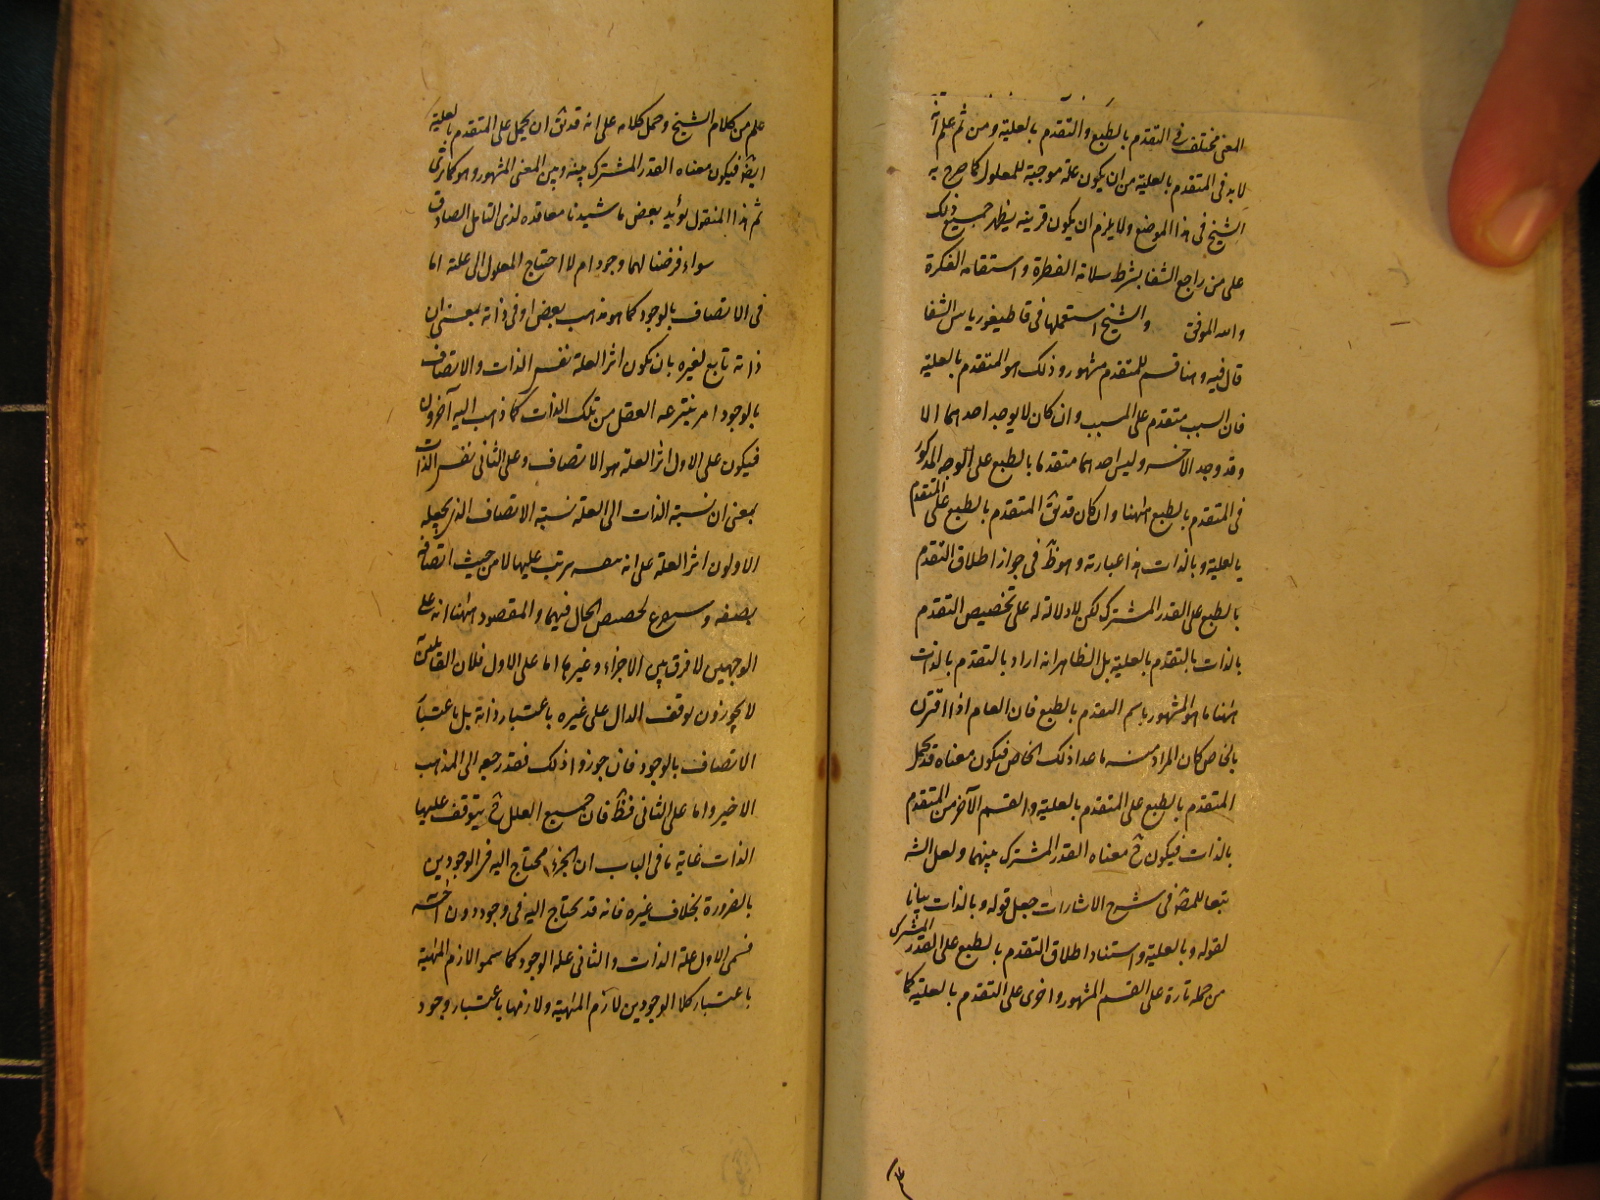 المعنى مختلف في التقدم بالطبع والتقدم بالعلية ومن ثم علم انه
لابد فى المتقدم بالعلية من ان يكون علة موجبة للمعلول كما صرح به
الشيخ فى هذا الموضع ولا يلزم ان يكون قرينه يظهر جميع ذلك
على من راجع الشفا بشرط سلامة الفطرة واستقامة الفكرة
والله الموفق والشيخ استعملها فى قاطيغورياس الشفا
قال فيه وهنا قسم للمتقدم مشهور وذلك هو المتقدم بالعلية
فان السبب متقدم على المسبب وان كان لا يوجد احدهما الا
وقد وجد الاخر وليس احدهما متقدما بالطبع على الوجه المذكور
فى المتقدم بالطبع ههنا وان كان قد يق المتقدم بالطبع على المتقدم
بالعلية وبالذات هذا عبارته وهو ظ فى جواز اطلاق التقدم
بالطبع على القدر المشترك لكن لا دلالة له على تخصيص التقدم
بالذات بالتقدم بالعلية بل الظاهر انه اراد بالتقدم بالذات
ههنا ما هو المشهور باسم التقدم بالطبع فان العام اذا اقترن
بالخاص كان المراد منه ما عدا ذلك الخاص فيكون معناه قد يحمل
المتقدم بالطبع على المتقدم بالعلية والقسم الآخر من المتقدم
بالذات فيكون ح معناه القدر المشترك بينهما ولعل الشه
تبعا للمص فى شرح الاشارات جعل قوله وبالذات بيانا
لقوله وبالعلية واستناد اطلاق التقدم بالطبع على القدر المشترك
من حمله تارة على القسم المشهور واخرى على التقدم بالعلية كما
علم من كلام الشيخ وحمل كلامه على انه قد يق ان يحمل على المتقدم بالعلية
ايضا فيكون معناه القدر المشترك بينه وبين المعنى المشهور وهو كما ترى
ثم هذا المنقول يؤيد بعض ما شيدنا معاقده لذى التامل الصادق
سواء فرضنا لهما وجود ام لا احتياج المعلول الى علته اما
فى الاتصاف بالوجود كما هو مذهب بعض او فى ذاته بمعنى ان
ذاته تابع لغيره بان يكون اثر العلة نفس الذات والاتصاف
بالوجود امر ينتزعه العقل من تلك الذات كما ذهب اليه آخرون
فيكون على الاول اثر العلة هو الاتصاف وعلى الثانى نفس الذات
بمعنى ان نسبة الذات الى العلة نسبة الاتصاف الذى يجعله
الاولون اثر العلة على انه نفسه يرتب عليها لا من حيث اتصافه
بصفة الحال فيهما والمقصود ههنا انه على
الوجهين لا فرق بين الاجزاء وغيرها اما على الاول فلان القائلين
لا يجوزون توقف الدال على غيره باعتبار ذاته بل باعتبار
الاتصاف بالوجود فان جوزوا ذلك فقد رجع الى المذهب
الاخير واما على الثانى فظ فان جميع العلل ح يتوقف عليها
الذات غاية ما فى الباب ان الجزء محتاج اليه فى الوجودين
بالضرورة بخلاف غيره فانه قد يحتاج اليه فى وجود دون آخر
فسمى الاول علة الذات والثانى علة الوجود كما سموا لازم المهية
باعتبار كلا الوجودين لازم المهية ولازمها باعتبار وجود